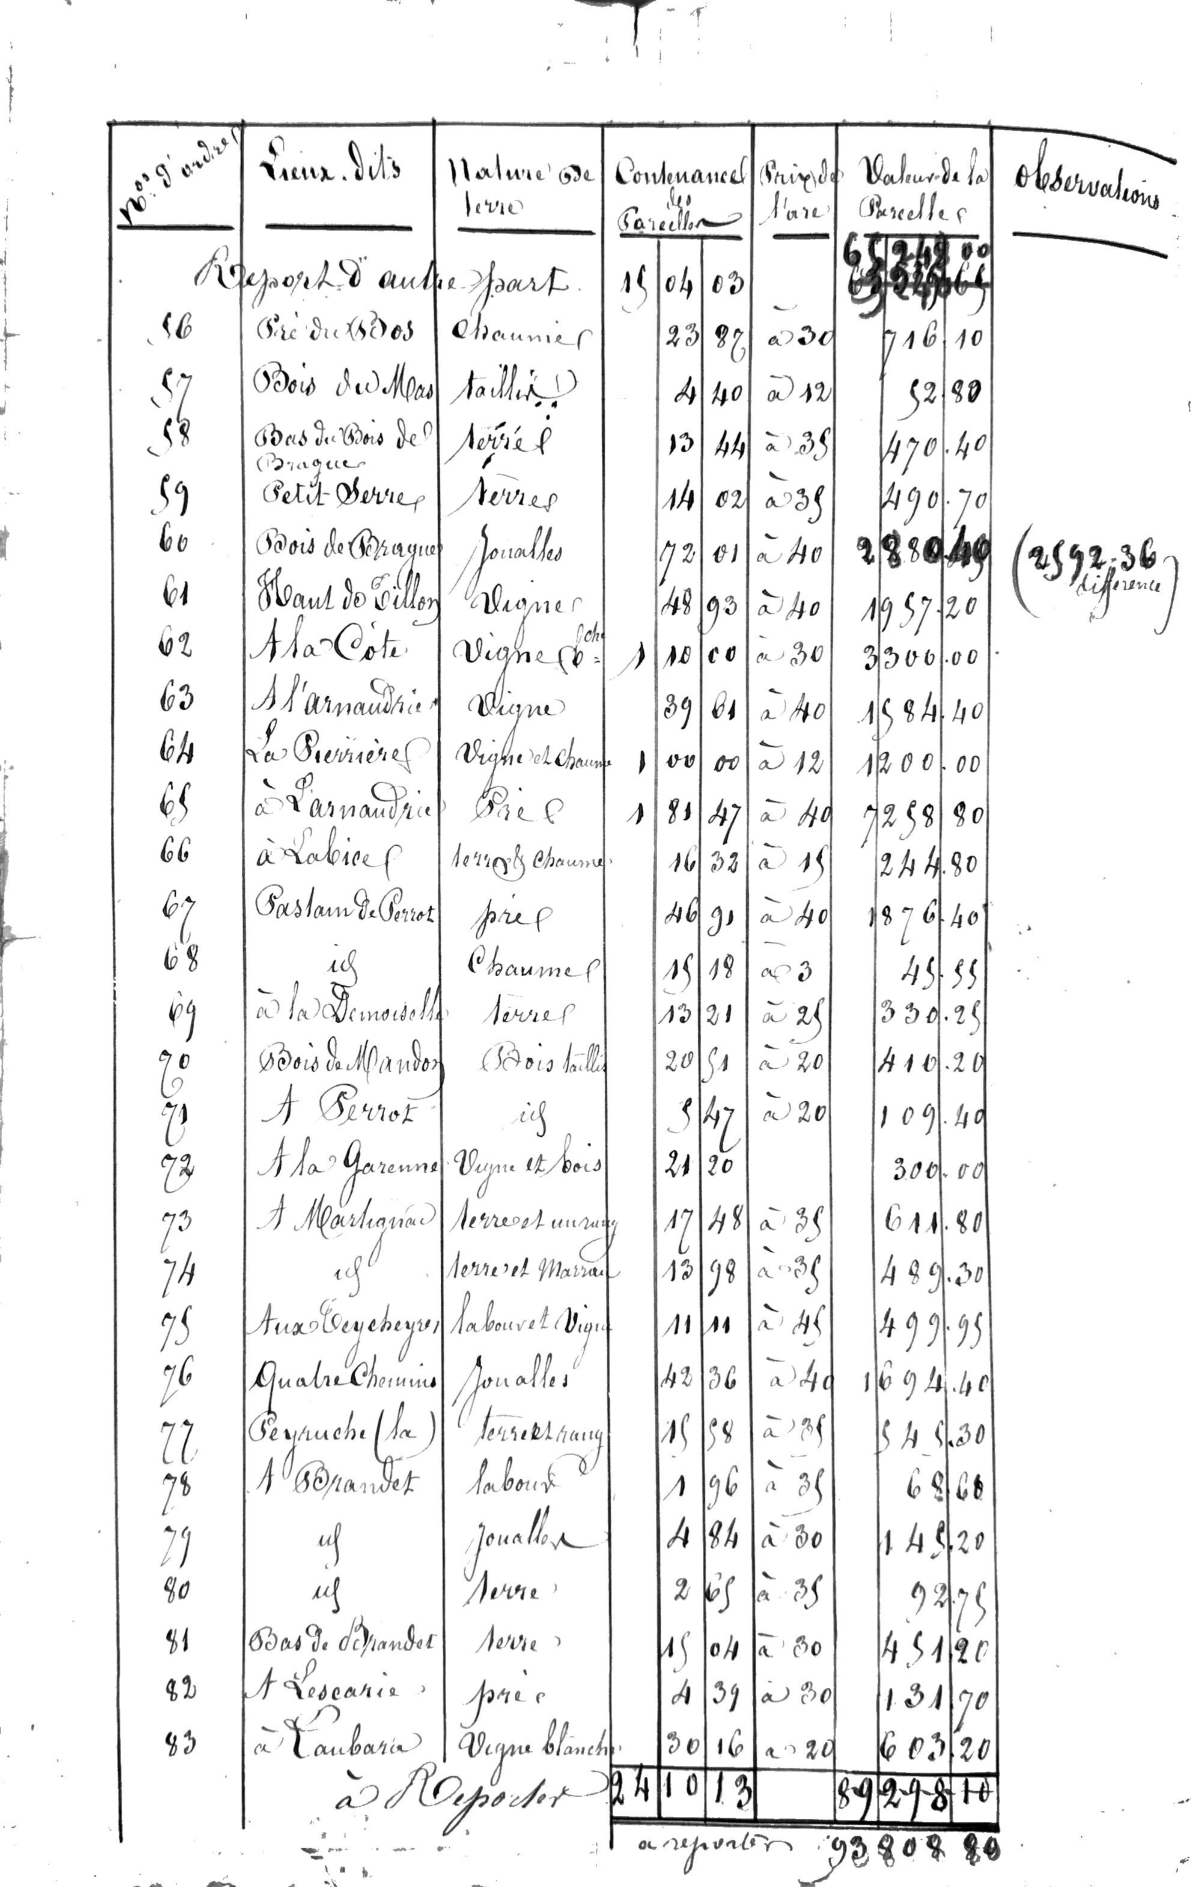 Nos d'ordre Lieux-dits Nature de terre Contenance des Parcelles Prix de l'are Valeur de la Parcelle Observations
65 248 00
Report d'autre part. 15 04 03
56 Pré du Bos Chaume 23 87 à 30 716.10
57 Bois du Mas taillis 4 40 à 12 52.80
58 Bas du Bois de Brague terre 13 44 à 35 470.40
59 Petit Serre terre 14 02 à 35 490.70
60 Bois de Brague Joualles 72 01 à 40 2880.40 (2592.36 difference)
61 Haut de Tillon Vigne 48 93 à 40 1957.20
62 A la Côte Vigne bche 1 10 00 à 30 3300.00
63 A l'arnaudrie Vigne 39 61 à 40 1584.40
64 La Pierrière Vigne et chaume 1 00 00 à 12 1200.00
65 à L'arnaudrie Pré 1 81 47 à 40 7258 80
66 à Labice terre & chaume 16 32 à 15 244.80
67 Pastain de Perrot pré 46 91 à 40 1876.40
68 id Chaume 15 18 à 3 45.55
69 à la Demoiselle terre 13 21 à 25 330.25
70 Bois de Mandon Bois taillis 20 51 à 20 410.20
71 A Perrot id 5 47 à 20 109.40
72 A la Garenne Vigne et bois 21 20 300.00
73 A Martignac terre et un rang 17 48 à 35 611.80
74 id terre et 13 98 à 35 489.30
75 Aux Teycheyres labour et Vigne 11 11 à 45 499.95
76 Quatre Chemins Joualles 42 36 à 40 1694.40
77 Peyruche (la) terre et rang 15 58 à 35 545.30
78 A Brandet labour 1 96 à 35 68 60
79 id Joualles 4 84 à 30 145.20
80 id terre 2 65 à 35 92.75
81 Bas de Brandet terre 15 04 à 30 451 20
82 A Lescarie pré 4 39 à 30 131 70
83 à Laubarie Vigne blanche 30 16 a 20 603.20
à Reporter 24 10 13 89 298 10
a reporter 93 808 80